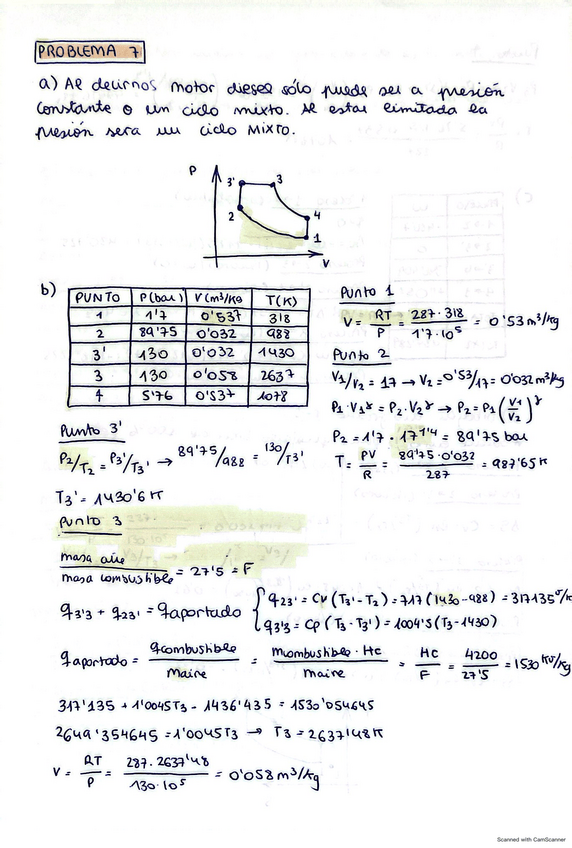 PROBLEMA 7
a) Al decirnos motor diesel sólo puede ser a presión
constante o un ciclo mixto. Al estar limitada la
presión sera un ciclo Mixto.
P
3'
3
2
4
1
V
b)
PUNTO P(bar) V(m³/kg) T(K)
1 1'7 0'537 318
2 89'75 0'032 988
3' 130 0'032 1430
3 130 0'058 2637
4 5'76 0'537 1078
Punto 1
V = RT/P = 287·318/1'7·10⁵ = 0'53 m³/kg
Punto 2
V₁/V₂ = 17 → V₂ = 0'53/17 = 0'032 m³/kg
P₁·V₁^γ = P₂·V₂^γ → P₂ = P₁(V₁/V₂)^γ
P₂ = 1'7 · 17^1'4 = 89'75 bar
T = PV/R = 89'75·0'032/287 = 987'65 K
Punto 3'
P₂/T₂ = P₃'/T₃' → 89'75/988 = 130/T₃'
T₃' = 1430'6 K
Punto 3
masa aire/masa combustible = 27'5 = F
q₃'₃ + q₂₃' = q aportado
q₂₃' = Cv (T₃' - T₂) = 717 (1430 - 988) = 317135 J/kg
q₃'₃ = Cp (T₃ - T₃') = 1004'5 (T₃ - 1430)
q aportado = q combustible/maire = mcombustible · Hc/maire = HC/F = 4200/27'5 = 1530 KJ/kg
317'135 + 1'0045T₃ - 1436'435 = 1530'054645
2649'354645 = 1'0045T₃ → T₃ = 2637'48 K
V = RT/P = 287·2637'48/130·10⁵ = 0'058 m³/kg
Scanned with CamScanner